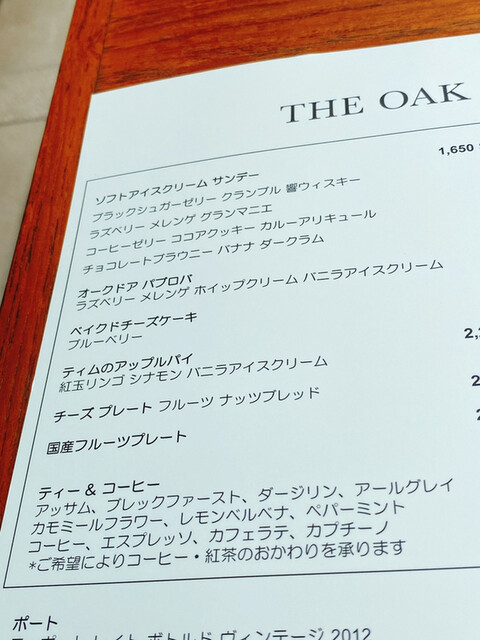 THE OAK
1,650
ソフトアイスクリーム サンデー
ブラックシュガーゼリー クランブル 響ウィスキー
ラズベリー メレンゲ グランマニエ
コーヒーゼリー ココアクッキー カルーアリキュール
チョコレートブラウニー バナナ ダークラム
オークドア パブロバ
ラズベリー メレンゲ ホイップクリーム バニラアイスクリーム
ベイクドチーズケーキ
ブルーベリー
ティムのアップルパイ
紅玉リンゴ シナモン バニラアイスクリーム
チーズ プレート フルーツ ナッツブレッド
国産フルーツプレート
ティー & コーヒー
アッサム、ブレックファースト、ダージリン、アールグレイ
カモミールフラワー、レモンベルベナ、ペパーミント
コーヒー、エスプレッソ、カフェラテ、カプチーノ
*ご希望によりコーヒー・紅茶のおかわりを承ります
ポート
ボトルド ヴィンテージ 2012